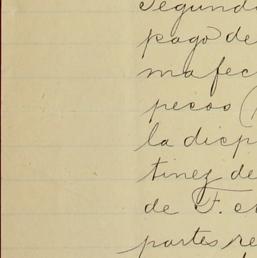 Segundo
pago de
ma fec
pecos (
la dicp
tinez de
de F. en
partes re